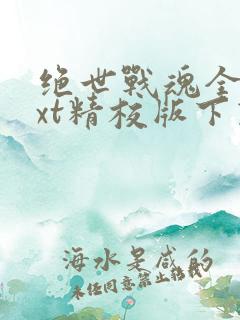 绝世战魂全
xt精校版下
海水是咸的
未经同意禁止转载